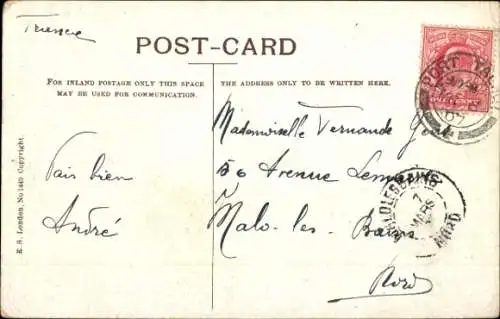 POST-CARD
FOR INLAND POSTAGE ONLY THIS SPACE
MAY BE USED FOR COMMUNICATION.
THE ADDRESS ONLY TO BE WRITTEN HERE.
E. S. London, No 1449 Copyright.
Vais bien
André
Mademoiselle Vernande
56 Avenue
Malo-les-Bains
Nord
PORT TA
07
MALO LES BAINS
7
MARS
NORD